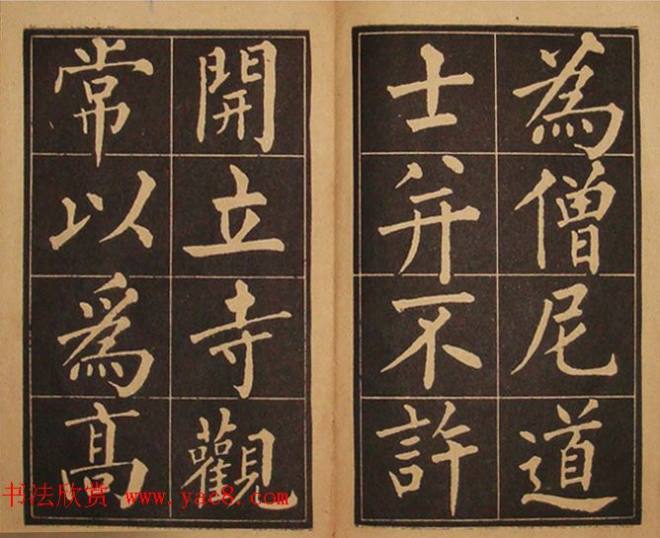 為僧尼道
士并不許
開立寺觀
常以為高
书法欣赏 www.yac8.com